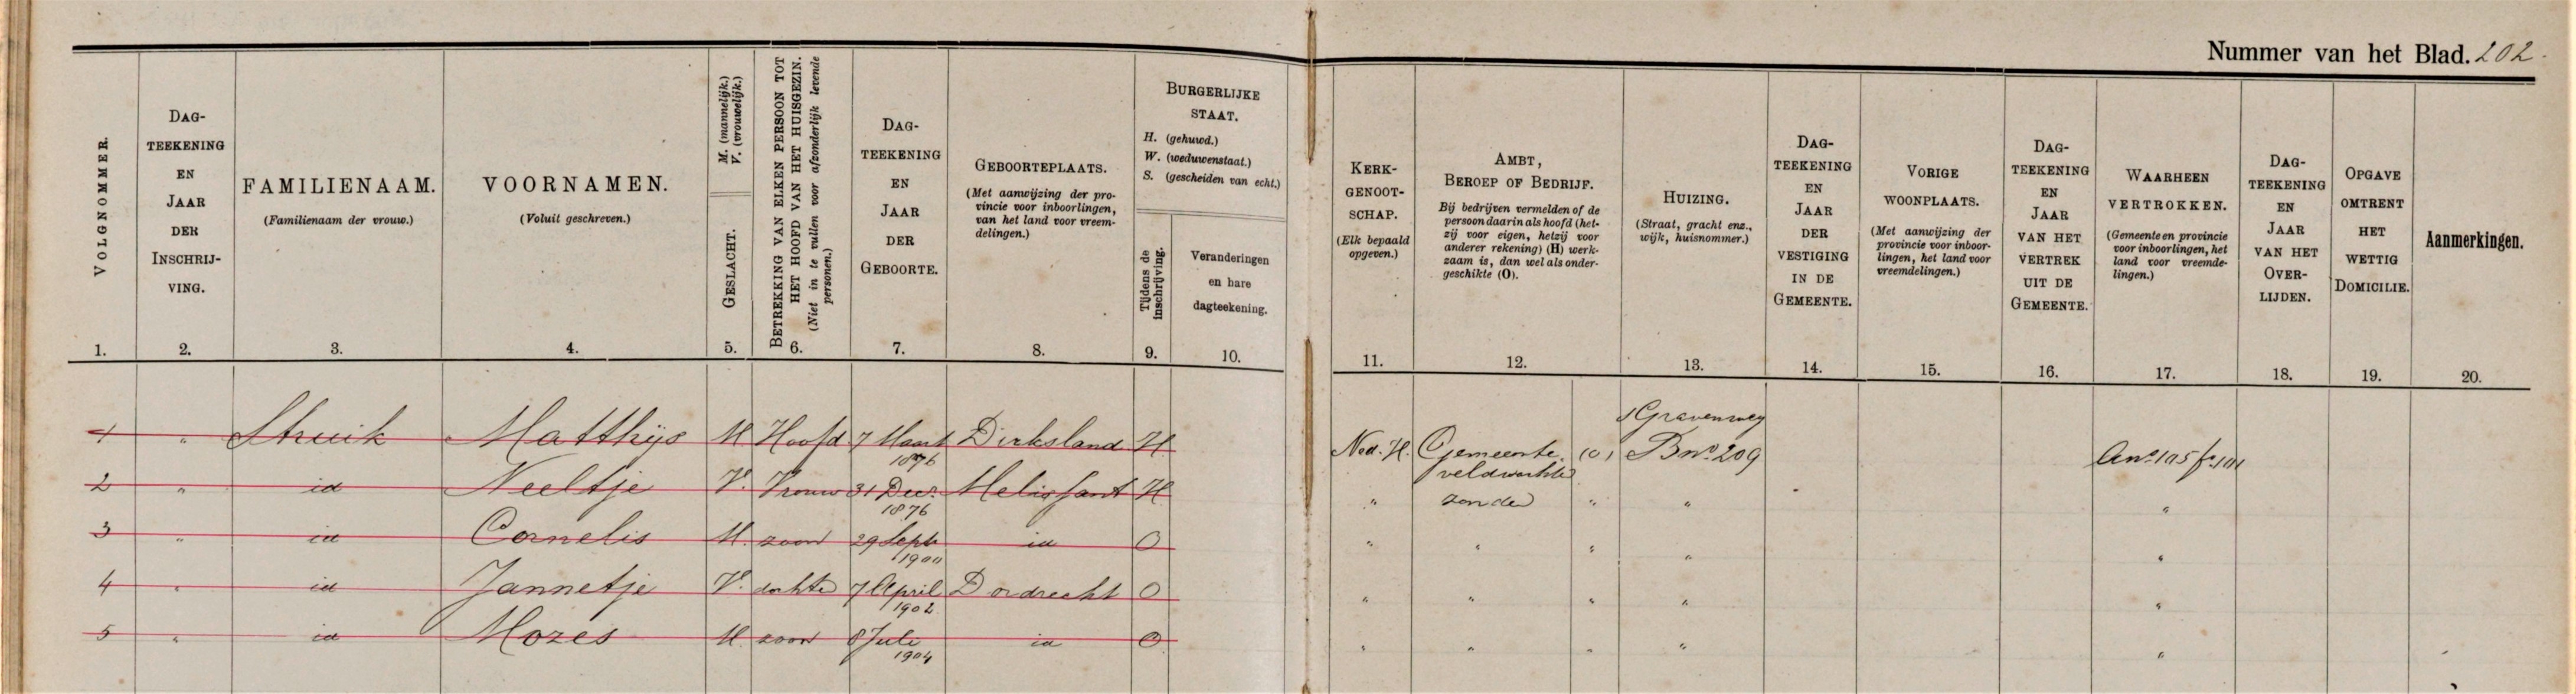 Nummer van het Blad. 202.
VOLGNOMMER.
DAG-
TEEKENING
EN
JAAR
DER
INSCHRIJ-
VING.
FAMILIENAAM.
(Familienaam der vrouw.)
VOORNAMEN.
(Voluit geschreven.)
GESLACHT. M. (mannelijk.)
V. (vrouwelijk.)
BETREKKING VAN ELKEN PERSOON TOT
HET HOOFD VAN HET HUISGEZIN.
(Niet in te vullen voor afzonderlijk levende
personen.)
DAG-
TEEKENING
EN
JAAR
DER
GEBOORTE.
GEBOORTEPLAATS.
(Met aanwijzing der pro-
vincie voor inboorlingen,
van het land voor vreem-
delingen.)
BURGERLIJKE
STAAT.
H. (gehuwd.)
W. (weduwenstaat.)
S. (gescheiden van echt.)
Tijdens de
inschrijving.
Veranderingen
en hare
dagteekening.
KERK-
GENOOT-
SCHAP.
(Elk bepaald
opgeven.)
AMBT,
BEROEP OF BEDRIJF.
Bij bedrijven vermelden of de
persoon daarin als hoofd (het-
zij voor eigen, hetzij voor
anderer rekening) (H) werk-
zaam is, dan wel als onder-
geschikte (O).
HUIZING.
(Straat, gracht enz.,
wijk, huisnommer.)
DAG-
TEEKENING
EN
JAAR
DER
VESTIGING
IN DE
GEMEENTE.
VORIGE
WOONPLAATS.
(Met aanwijzing der
provincie voor inboor-
lingen, het land voor
vreemdelingen.)
DAG-
TEEKENING
EN
JAAR
VAN HET
VERTREK
UIT DE
GEMEENTE.
WAARHEEN
VERTROKKEN.
(Gemeente en provincie
voor inboorlingen, het
land voor vreemde-
lingen.)
DAG-
TEEKENING
EN
JAAR
VAN HET
OVER-
LIJDEN.
OPGAVE
OMTRENT
HET
WETTIG
DOMICILIE.
Aanmerkingen.
1. 2. 3. 4. 5. 6. 7. 8. 9. 10. 11. 12. 13. 14. 15. 16. 17. 18. 19. 20.
sGravenweg
1 " Struik Matthijs M Hoofd 7 Maart Dirksland H Ned. H. Gemeente (O) B no 209
1876 veldwachter
2 " id Neeltje V. Vrouw 31 Dec. Melissant H " zonder " " "
1876
3 " id Cornelis M. zoon 29 Sept id O " " " " "
1900
4 " id Jannetje V. dochter 7 April Dordrecht O " " " " "
1902
5 " id Mozes M. zoon 8 Juli id O " " " " "
1904